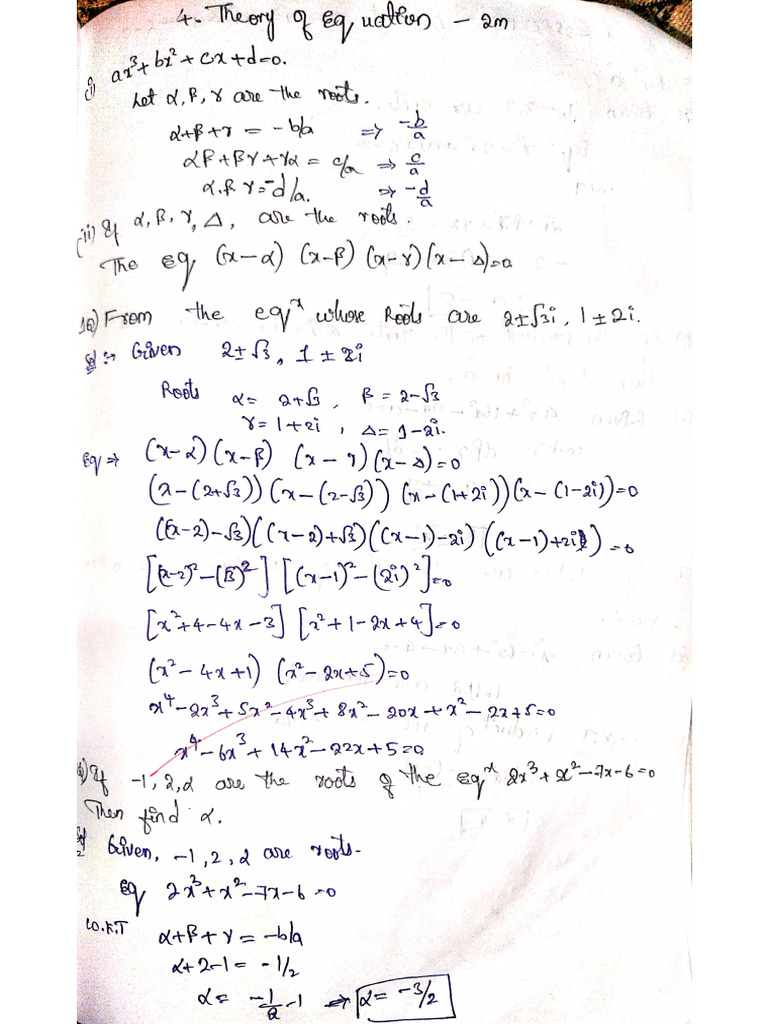 4. Theory of Equation - 2m
(i) ax³ + bx² + cx + d = 0.
Let α, β, γ are the roots.
α+β+γ = -b/a ⇒ -b/a
αβ+βγ+γα = c/a ⇒ c/a
α.β γ = -d/a. ⇒ -d/a
(ii) If α, β, γ, Δ, are the roots.
The eq (x-α) (x-β) (x-γ) (x-Δ)=0
1Q) From the eqⁿ whose Roots are 2±√3i, 1±2i.
Sol :- Given 2±√3, 1±2i
Roots α = 2+√3, β = 2-√3
γ = 1+2i, Δ = 1-2i.
Eq ⇒ (x-α)(x-β) (x-γ)(x-Δ)=0
(x-(2+√3))(x-(2-√3)) (x-(1+2i))(x-(1-2i))=0
((x-2)-√3)((x-2)+√3)((x-1)-2i) ((x-1)+2i)=0
[(x-2)²-(√3)²] [(x-1)²-(2i)²]=0
[x²+4-4x-3] [x²+1-2x+4]=0
(x²-4x+1) (x²-2x+5)=0
x⁴-2x³+5x²-4x³+8x²-20x+x²-2x+5=0
x⁴-6x³+14x²-22x+5=0
If -1, 2, α are the roots of the eqⁿ 2x³+x²-7x-6=0
Then find α.
Given, -1, 2, α are roots.
Eq 2x³+x²-7x-6=0
W.K.T α+β+γ = -b/a
α+2-1 = -1/2
α = -1/2 -1 ⇒ α = -3/2